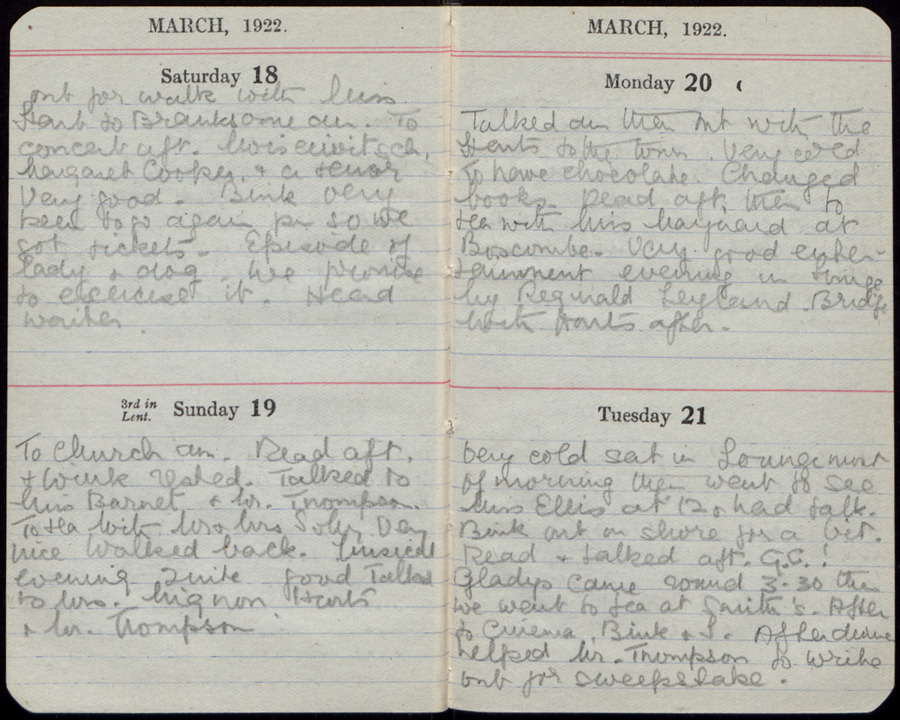 MARCH, 1922.
Saturday 18
out for walk with Miss
Hart to Branksome am. To
concert aft. Moiseivitsch,
Margaret Cooper, & a tenor
Very good. Bink very
keen to go again pm so we
got tickets. Episode of
lady & dog. We promise
to exercise it. Head
waiter.
3rd in Lent. Sunday 19
To Church am. Read aft.
& Wink rested. Talked to
Miss Barnet & Mr. Thompson.
To tea with Mrs Day
nice walked back. Musical
evening quite good Talked
to Mrs. Mignon Harts
& Mr. Thompson
MARCH, 1922.
Monday 20
Talked am then out with the
Harts to the town. Very cold
To have chocolate. Changed
books. Read aft. then to
tea with Miss Maynard at
Boscombe. Very good enter-
tainment evening in lounge
by Reginald Leyland. Bridge
with Harts after.
Tuesday 21
Very cold sat in Lounge most
of morning then went to see
Miss Ellis at 12 & had talk.
Bink out on shore for a bit.
Read & talked aft. G.G.!
Gladys came round 3.30 then
we went to tea at Smith's. After
to Cinema. Bink & I. After dinner
helped Mr. Thompson to write
out for sweepstake.